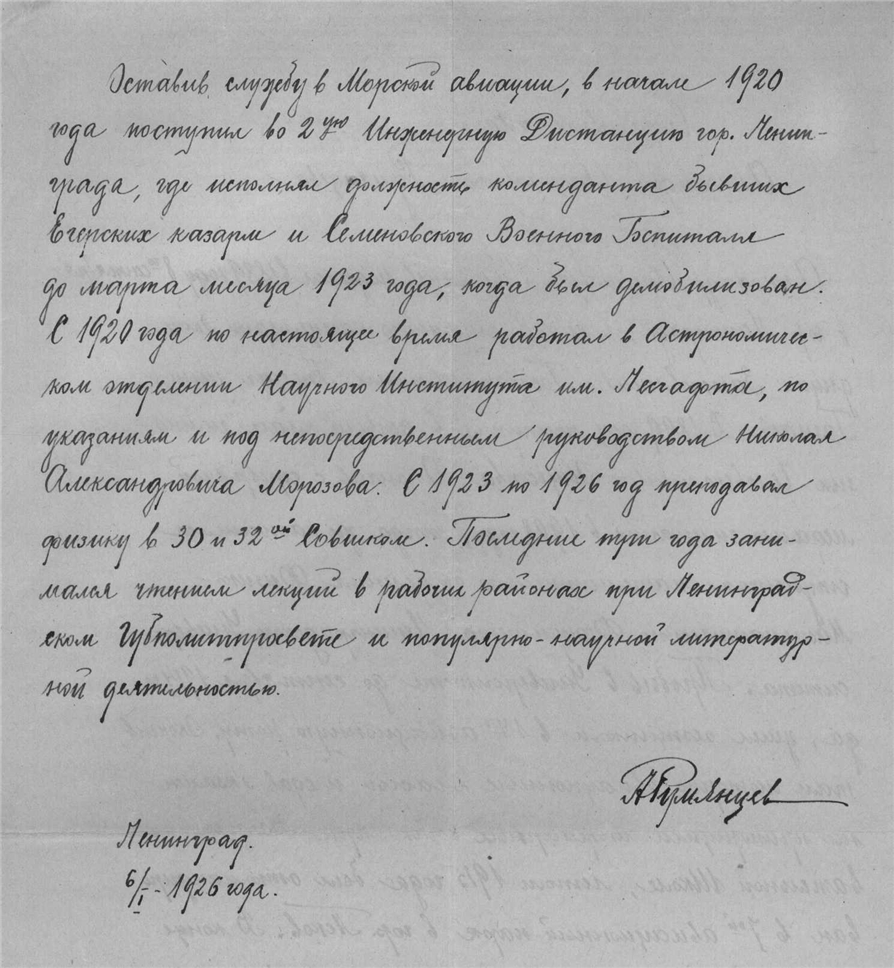 Оставив службу в Морской авиации, в начале 1920
года поступил во 2ую Инженерную Дистанцию гор. Ленин-
града, где исполнял должность коменданта бывших
Егерских казарм и Семеновского Военного Госпиталя
до марта месяца 1923 года, когда был демобилизован.
С 1920 года по настоящее время работал в Астрономичес-
ком отделении Научного Института им. Лесгафта, по
указаниям и под непосредственным руководством Николая
Александровича Морозова. С 1923 по 1926 год преподавал
физику в 30 и 32ой Совшком. Последние три года зани-
мался чтением лекций в рабочих районах при Ленинград-
ском Губполитпросвете и популярно-научной литератур-
ной деятельностью.
АРумянцев
Ленинград.
6/I - 1926 года.